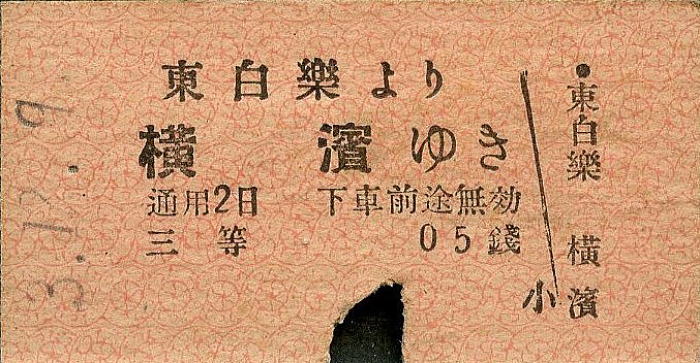 3.12.9
東白樂より
横濱ゆき
通用2日 下車前途無効
三等 05錢
●東白樂 横濱
小